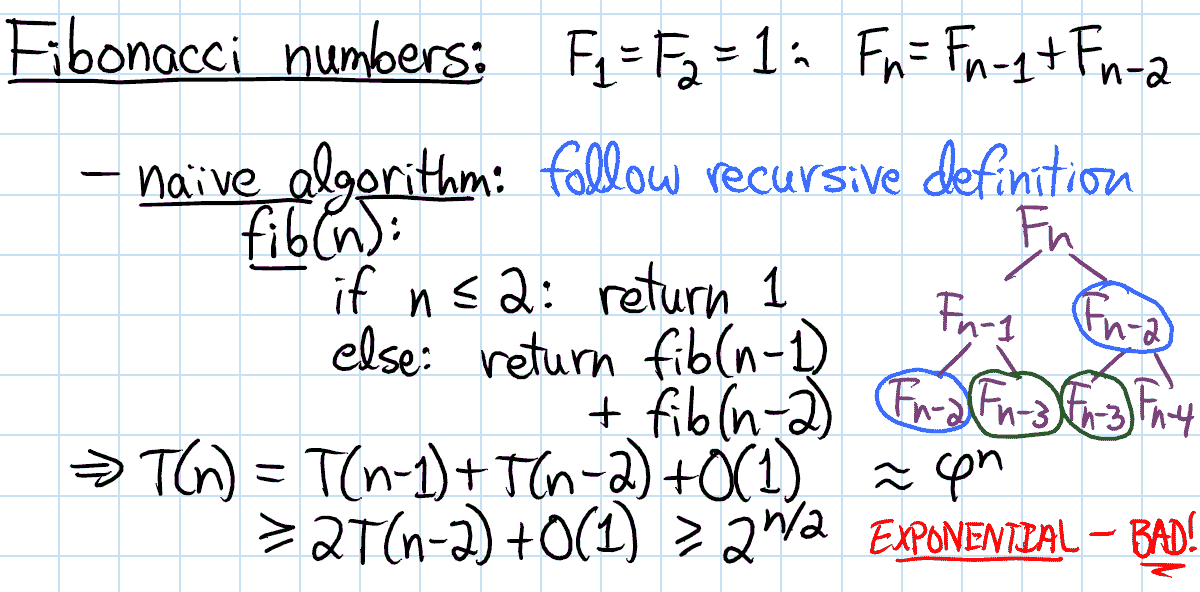 Fibonacci numbers: F₁=F₂=1; Fₙ=Fₙ₋₁+Fₙ₋₂
- naïve algorithm: follow recursive definition
fib(n):
Fₙ
if n ≤ 2: return 1
Fₙ₋₁ Fₙ₋₂
else: return fib(n-1)
+ fib(n-2)
Fₙ₋₂ Fₙ₋₃ Fₙ₋₃ Fₙ₋₄
⇒ T(n) = T(n-1)+T(n-2)+O(1) ≈ φⁿ
≥ 2T(n-2)+O(1) ≥ 2^(n/2) EXPONENTIAL - BAD!